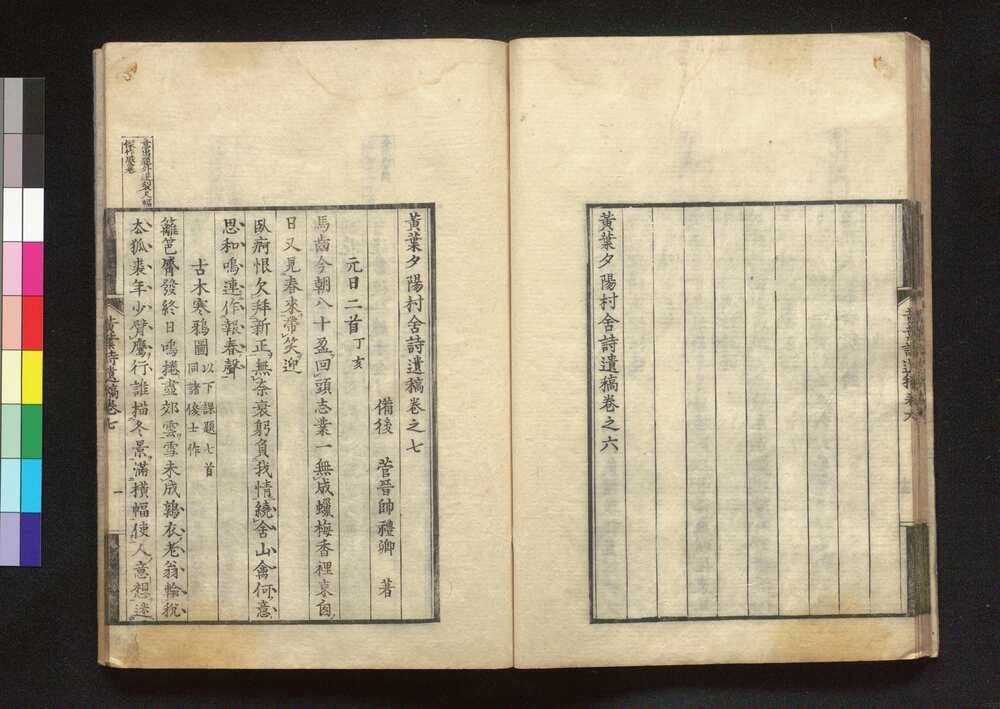 黃葉夕陽村舍詩遺稿卷之六
黃葉夕陽村舍詩遺稿卷之七
備後 菅晉帥禮卿 著
元日二首丁亥
馬齒今朝八十盈回頭志業一無成蠟梅香裡哀白
日又見春來帶笑迎
臥痾恨欠拜新正無奈衰躬負我情繞舍山禽何意
思和鳴連作報春聲
古木寒鴉圖以下課題七首
同諸俊士作
籬笆觱發終日鳴捲盡郊雲雪未成鶉衣老翁輸稅
去狐裘年少臂鷹行誰描冬景滿橫幅使人意想迷
黃葉詩遺稿卷七
一